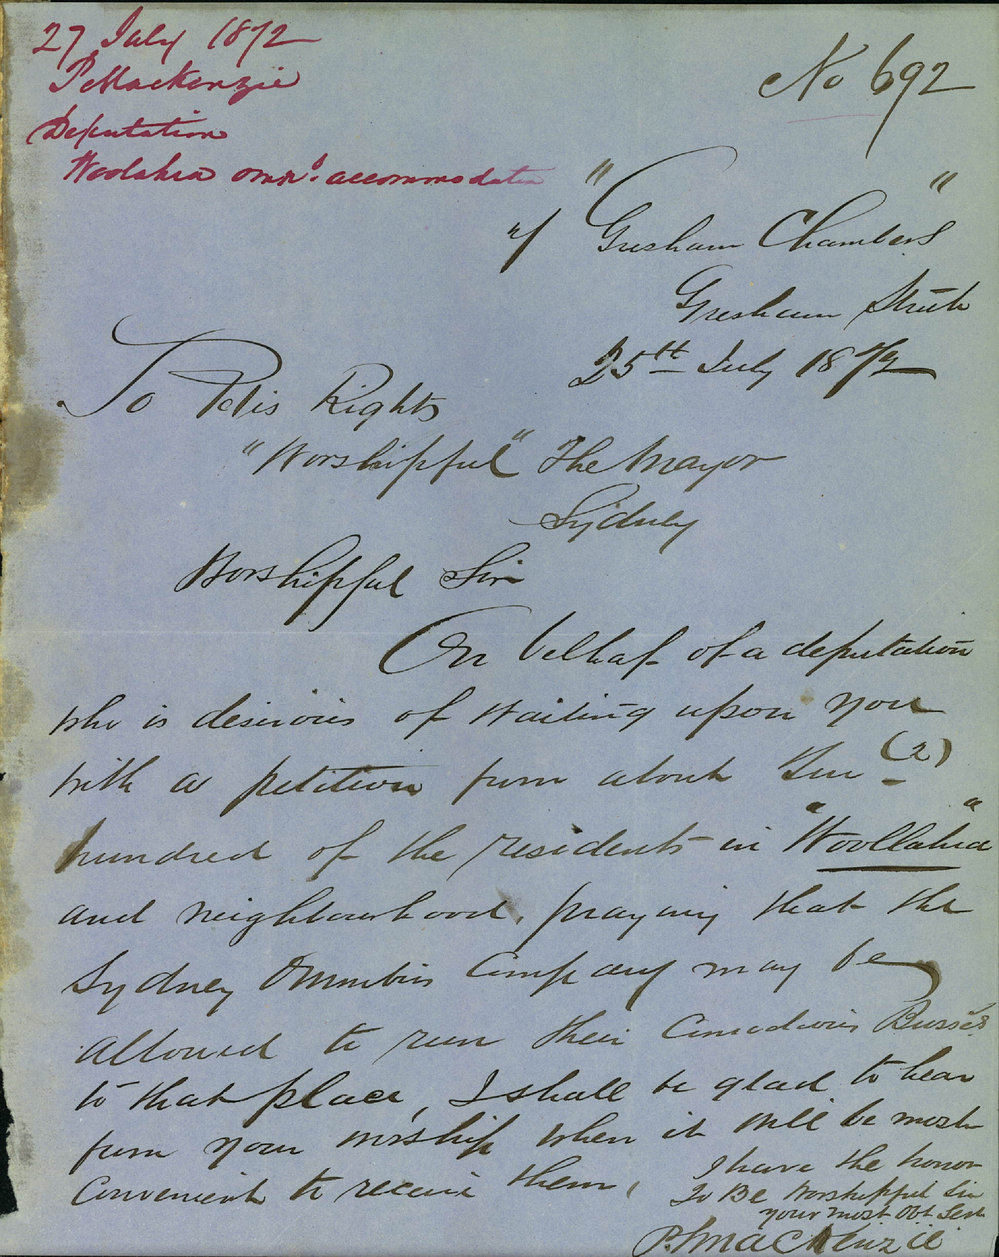 27 July 1872
P McKenzie
Deputation
Woolahra omns. accommodation
No 692
of "Gresham Chambers"
Gresham Street
25th July 1872
To His Rights
"Worshipful" The Mayor
Sydney
Worshipful Sir
On behalf of a deputation
who is desirous of waiting upon you
with a petition from about two (2)
hundred of the residents in "Woollahra"
and neighbourhood, praying that the
Sydney Omnibus Company may be
allowed to run their Comodious Busses
to that place, I shall be glad to hear
from your worship when it will be most
Convenient to receive them,
I have the honor
To Be Worshipful Sir
your most Obt Sert
P. MacKenzie